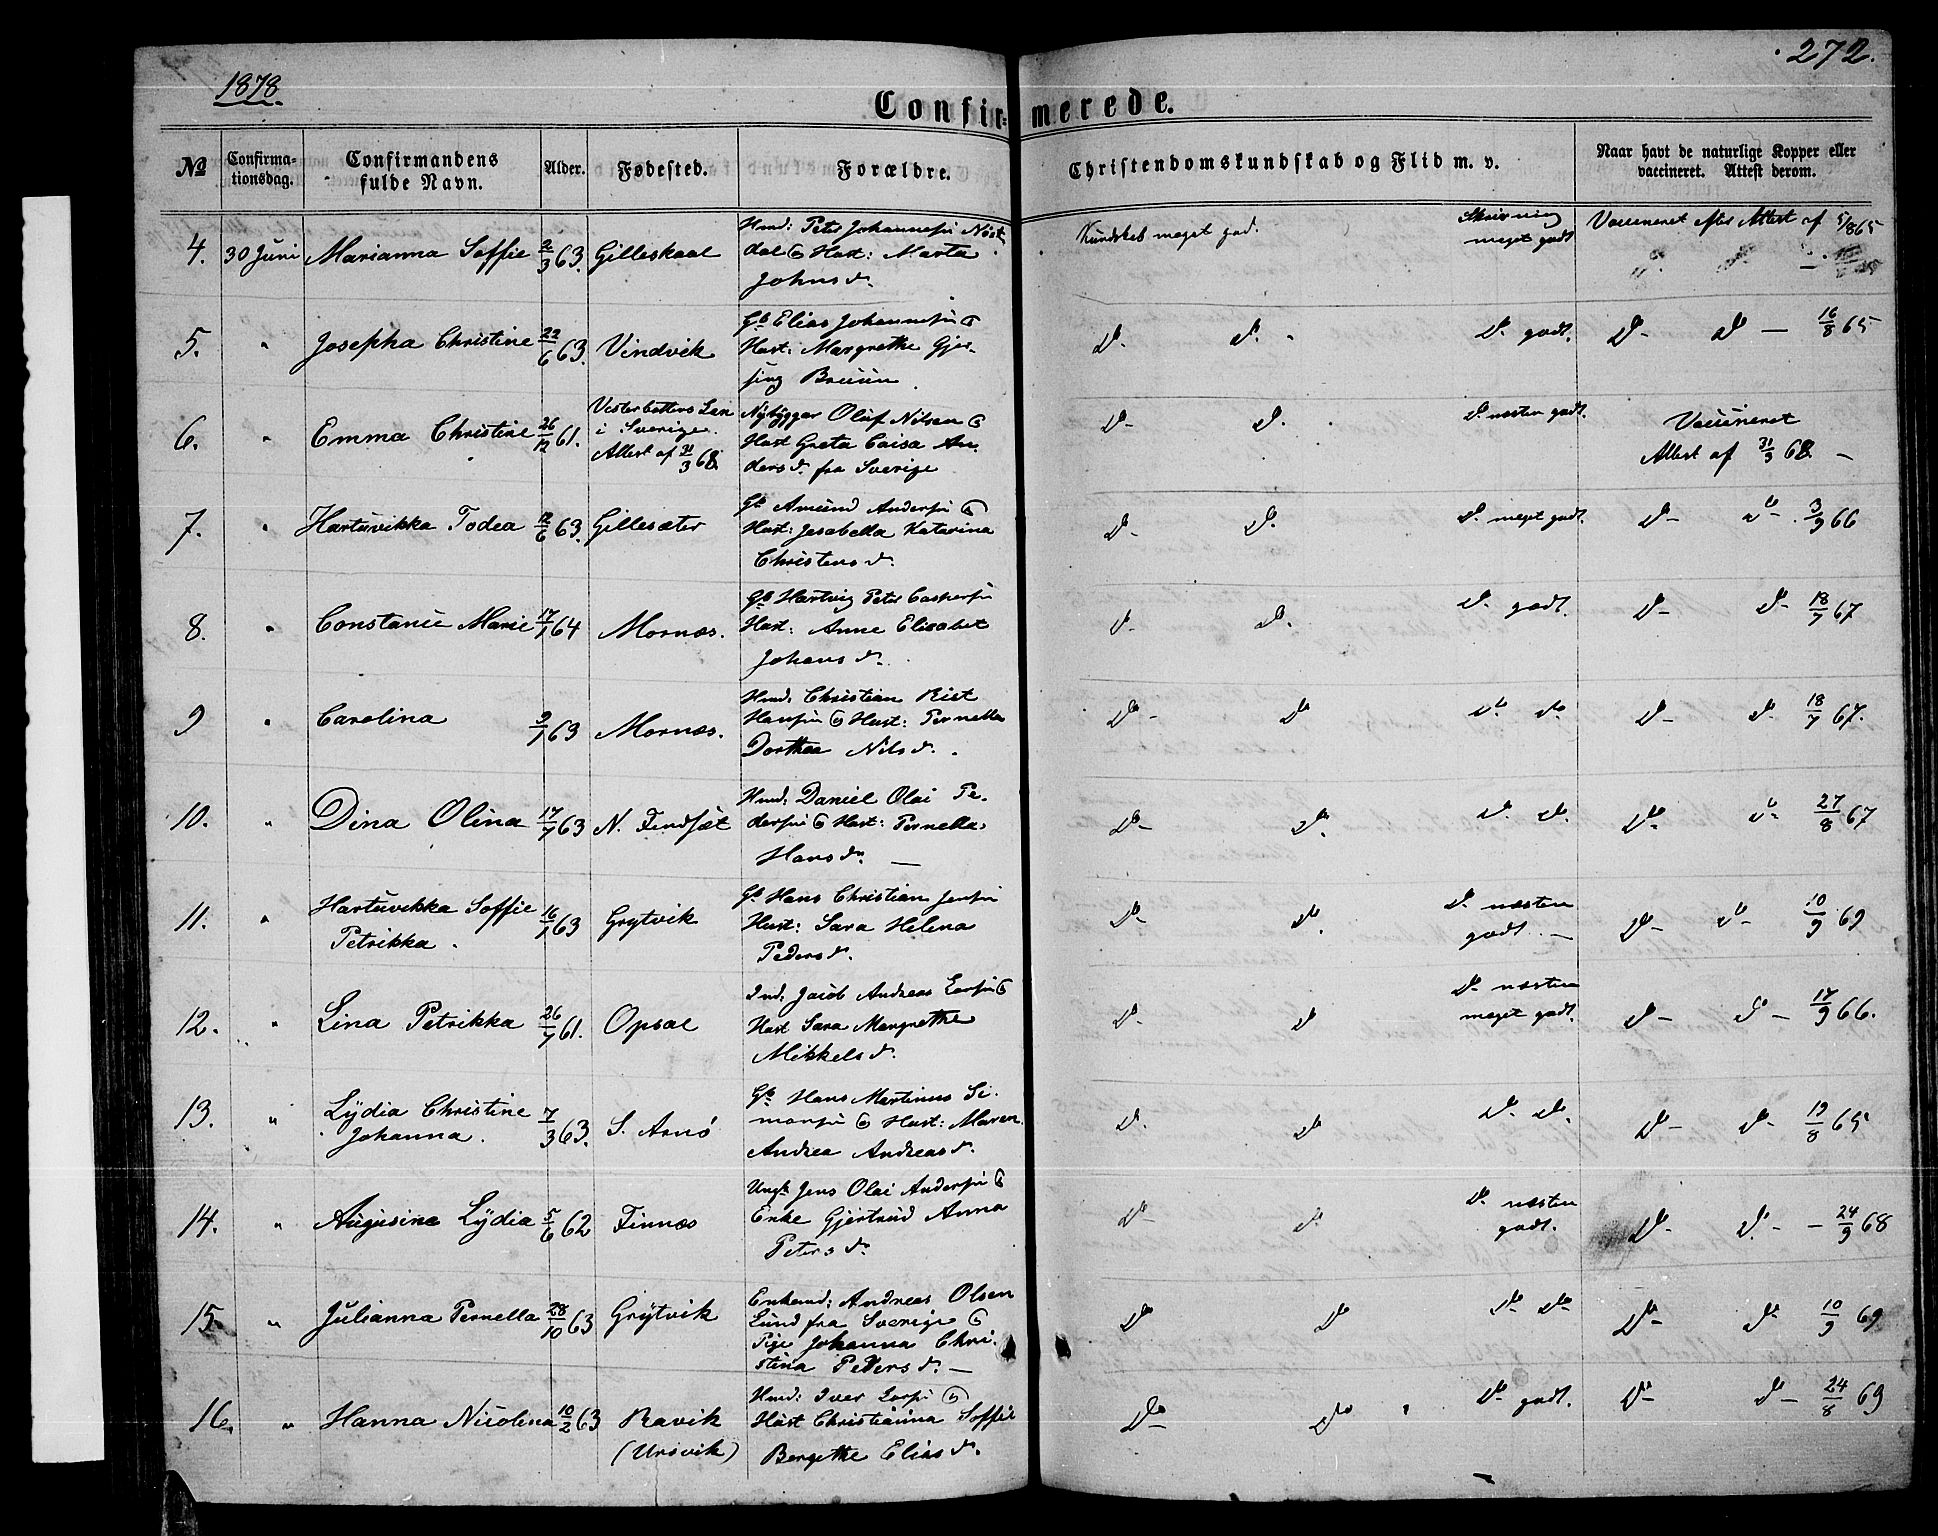 1878.
272.
Confirmerede.
No
Confirma-
tionsdag.
Confirmandens
fulde Navn.
Alder.
Fødested.
Forældre.
Christendomskundskab og Flid m. v.
Naar havt de naturlige Kopper eller
vaccineret. Attest derom.
4. 30 Juni Marianna Soffie 2/3 63. Gilleskaal
Hmd: Peter Johannesen
dal & Hust: Marta
Johnsd.
Kundskab meget god.
Skrivning
meget godt
Vaccineret efter Attest af 5/8 65
5. " Josepha Christine 22/6 63. Vindvik
Gb Elias Johannesen &
Hust: Margrethe Gjer-
sing Bruun.
D. D. D. godt. D- D- 16/8 65
6. " Emma Christine 26/12 61.
Vesterbottens Len
i Sverige.
Attest af 31/3 68.
Nybygger Oluf Nilsen &
Hust Greta Caisa An-
dersd. fra Sverige
D- D. D. næsten godt.
Vaccineret
Attest af 31/3 68. -
7. " Hartuvikka Todea 12/6 63. Gillesæter
Gb Amund Andersen &
Hust: Jesabella Katarina
Christensd.
D- D. D. meget godt. D- D- 3/9 66
8. " Constanse Marie 17/1 64 Mornæs.
Gb Hartvig Peter Caspersen
Hust: Anne Elisabet
Johansd.
D. D. D. godt. D- D- 18/7 67
9 " Carolina 9/1 63 Mornæs.
Hmd: Christian Rist
Hansen & Hust: Pernella
Dorthea Nilsd.
D- D D. D. D- D. 18/7 67.
10. " Dina Olina 17/7 63 N. Findset
Hmd: Daniel Olai Pe-
dersen & Hust: Pernella
Hansd. -
D- D. D. D. D- D- 27/8 67
11. " Hartuvikka Soffie
Petrikka. 16/1 63 Grytvik
Gb Hans Christian Jensen
Hust: Sara Helena
Pedersd.
D- D. D. næsten
godt. - D- D- 10/9 69
12. " Lina Petrikka 26/7 61. Opsal
Ind: Jacob Andreas Larsen &
Hust Sara Margrethe
Mikkelsd.
D- D D. næsten
meget godt. D- D- 17/9 66.
13. " Lydia Christine
Johanna. 7/3 63. S. Arnö
Gb Hans Martinus Si-
monsen & Hust: Maren
Andrea Andreasd.
D. D D. D. D- D- 19/8 65
14. " Augusine Lydia 5/6 62 Finnæs
Ungk. Jens Olai Andersen &
Enke Gjertrud Anna
Petersd.
D- D- D. næsten
godt. D- D- - 24/9 68
15. " Julianna Pernella 28/10 63 Grytvik
Enkemd: Andreas Olsen
Lund fra Sverige &
Pige Johanna Chri-
stina Pedersd. -
D D D. D. D- D- 10/9 69
16. " Hanna Nicolina 10/2 63 Ravik
(Ursvik)
Hmd: Iver Larsen &
Hust Christianna Soffie
Bergethe Eliasd.
D- D. D. godt. D- D- 24/8 69